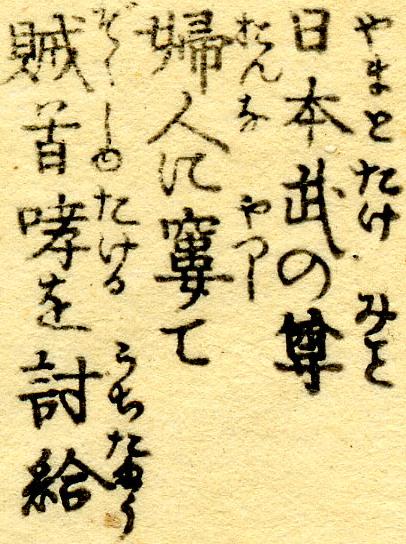 日本武の尊
やまとたけ みこと
婦人に窶て
おんな やつし
賊首哮を討給
ぞくしゆ たける うちたまう